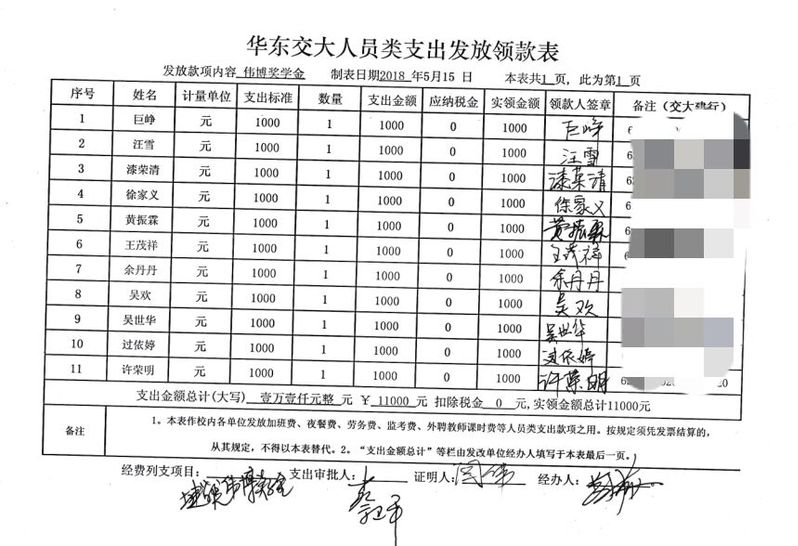 华东交大人员类支出发放领款表
发放款项内容 伟博奖学金 制表日期2018 年5月15 日 本表共1页，此为第1页
序号 姓名 计量单位 支出标准 数量 支出金额 应纳税金 实领金额 领款人签章 备注（交大建行）
1 巨峥 元 1000 1 1000 0 1000 巨峥 6
2 汪雪 元 1000 1 1000 0 1000 汪雪 6
3 漆荣清 元 1000 1 1000 0 1000 漆荣清 62
4 徐家义 元 1000 1 1000 0 1000 徐家义
5 黄振霖 元 1000 1 1000 0 1000 黄振霖
6 王茂祥 元 1000 1 1000 0 1000 王茂祥
7 余丹丹 元 1000 1 1000 0 1000 余丹丹
8 吴欢 元 1000 1 1000 0 1000 吴欢
9 吴世华 元 1000 1 1000 0 1000 吴世华
10 过依婷 元 1000 1 1000 0 1000 过依婷
11 许荣明 元 1000 1 1000 0 1000 许荣明
支出金额总计（大写） 壹万壹仟元整 元 ￥ 11000 元 扣除税金 0 元，实领金额总计11000元
备注
1、本表作校内各单位发放加班费、夜餐费、劳务费、监考费、外聘教师课时费等人员类支出款项之用。按规定须凭发票结算的，
从其规定，不得以本表替代。2、“支出金额总计”等栏由发改单位经办人填写于本表最后一页。
经费列支项目： 支出审批人： 证明人： 经办人：